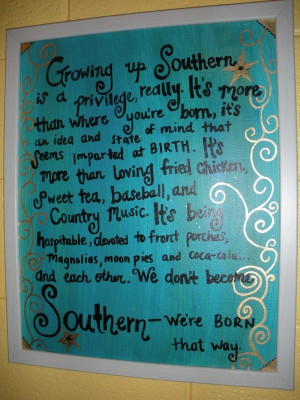 Growing up Southern
is a privilege, really. It's more
than where you're born, it's
an idea and state of mind that
seems imparted at BIRTH. It's
more than loving fried chicken,
sweet tea, baseball, and
Country Music. It's being
hospitable, devoted to front porches,
Magnolias, moon pies and coca-cola...
and each other. We don't become
Southern — we're BORN
that way.